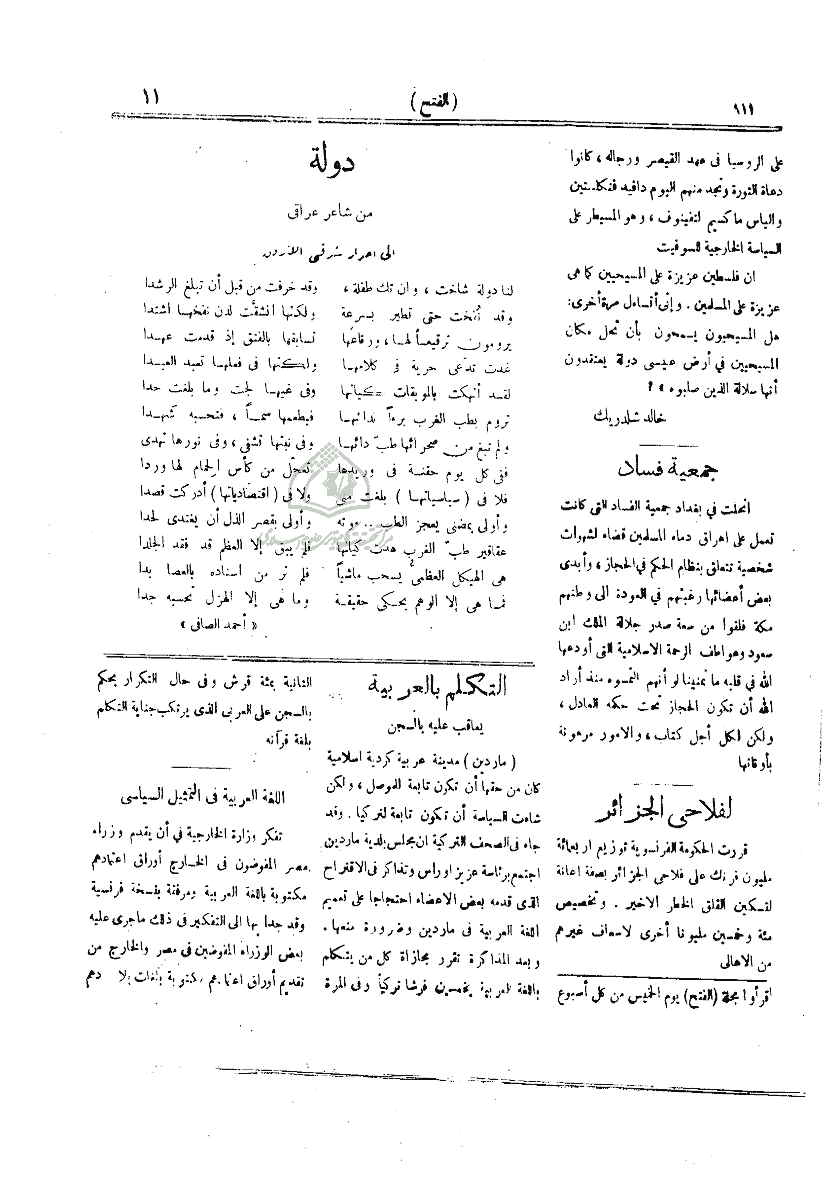 ١١١
( الفتح )
١١
على الروسيا فى عهد القيصر ورجاله ، كانوا
دعاة الثورة وتجد منهم اليوم دافيد فنكلستين
والياس ماكسيم لتفينوف ، وهو المسيطر على
السياسة الخارجية للسوفيت
ان فلسطين عزيزة على المسيحيين كما هى
عزيزة على المسلمين . وإنى أتساءل مرة أخرى :
هل المسيحيون يسمحون بأن تحل مكان
المسيحيين فى أرض عيسى دولة يعتقدون
أنها سلالة الذين صلبوه ؟
خالد شلدريك
جمعية فساد
انحلت في بغداد جمعية الفساد التى كانت
تعمل على اهراق دماء المسلمين قضاء لشهوات
شخصية تتعلق بنظام الحكم فى الحجاز ، وأبدى
بعض أعضائها رغبتهم في العودة الى وطنهم
مكة فلقوا من سعة صدر جلالة الملك ابن
سعود وعواطف الرحمة الاسلامية التى أودعها
الله في قلبه ما تمنينا لو أنهم التمسوه منذ أراد
الله أن تكون الحجاز تحت حكمه العادل ،
ولكن لكل أجل كتاب ، والامور مرهونة
بأوقاتها
لفلاحى الجزائر
قررت الحكومة الفرنسوية توزيع اربعمائة
مليون فرنك على فلاحى الجزائر بصفة اعانة
لتسكين القلق الخطر الاخير . وتخصيص
مئة وخمسين مليونا أخرى لاسعاف غيرهم
من الاهالى
اقرأوا مجلة (الفتح) يوم الخميس من كل أسبوع
دولة
من شاعر عراقى
الى احرار شرقى الاردن
لنا دولة شاخت ، وان تك طفلة ، وقد خرفت من قبل أن تبلغ الرشدا
وقد نُفخت حتى تطير بسرعة ولكنها انشقَّت لدن نفخها اشتدا
يرومون ترقيعاً لها ، ورقاعها تسابقها بالفتق إذ قدمت عهدا
غدت تدّعى حرية فى كلامها ولكنها فى فعلها تعبد العبدا
لقد أنهكت بالموبقات كيانها وفى غيها لجت وما بلغت حدا
تروم بطب الغرب برءاً لدائها فيطعمها سماً ، فتحسبه شهدا
ولم تبغ من صحرائها طبّ دائها وفى نبتها تشفى ، وفى نورها تهدى
ففى كل يوم حقنة فى وريدها تعجّل من كأس الحمام لها وردا
فلا فى ( سياسياتها ) بلغت منى ولا فى ( اقتصادياتها ) أدركت قصدا
وأولى بمضنى يعجز الطب .. موته وأولى بقصر الذل أن يغتدى لحدا
عقاقير طب الغرب هدت كيانها فلم يبق إلا العظم قد فقد الجلدا
هى الهيكل العظمى يسحب ماشياً فلم تر من اسناده بالعصا بدا
فما هى إلا الوهم يحكى حقيقة وما هى إلا الهزل تحسبه جدا
« أحمد الصافى »
التكلم بالعربية
يعاقب عليه بالسجن
( ماردين ) مدينة عربية كردية اسلامية
كان من حقها أن تكون تابعة للموصل ، ولكن
شاءت السياسة أن تكون تابعة لتركيا . وقد
جاء فى الصحف التركية ان مجلس بلدية ماردين
اجتمع برئاسة عزيز اوراس وتذاكر فى الاقتراح
الذى قدمه بعض الاعضاء احتجاجا على تعميم
اللغة العربية فى ماردين وضرورة منعها .
وبعد المذاكرة تقرر مجازاة كل من يتكلم
باللغة العربية بخمسين قرشا تركيا وفى المرة
الثانية بمئة قرش وفى حال التكرار يحكم
بالسجن على العربى الذى يرتكب جناية التكلم
بلغة قرآنه
اللغة العربية فى التمثيل السياسى
تفكر وزارة الخارجية في أن يقدم وزراء
مصر المفوضون فى الخارج أوراق اعتمادهم
مكتوبة باللغة العربية ومرفقة بنسخة فرنسية
وقد حدا بها الى التفكير فى ذلك ماجرى عليه
بعض الوزراء المفوضين فى مصر والخارج من
تقديم أوراق اعتمادهم مكتوبة بلغات بلادهم